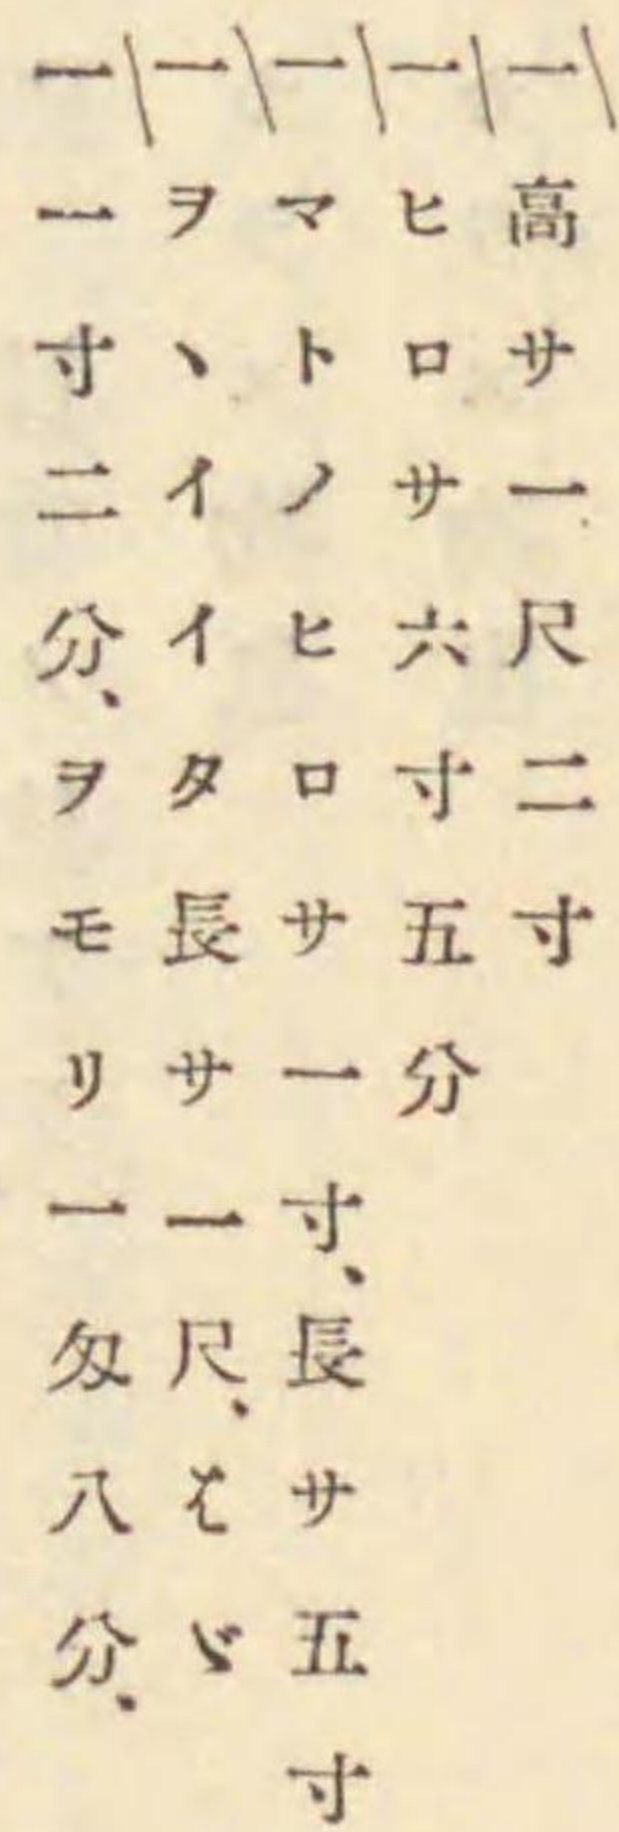 一\高サ一尺二寸
一\ヒロサ六寸五分
一\マトノヒロサ一寸、長サ五寸
一\ヲヽイイタ長サ一尺、はゞ
一\一寸二分、ヲモリ一匁八分、